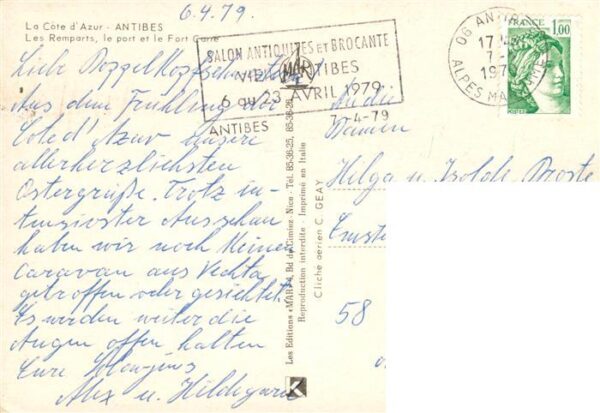 6.4.79.
La Côte d'Azur - ANTIBES
Les Remparts, le port et le Fort Carré
SALON ANTIQUITES ET BROCANTE
VIEIL ANTIBES
6 au 23 AVRIL 1979
ANTIBES 7-4-79
06 AN
17
7-
1979
ALPES MARITIMES
FRANCE
1,00
POSTES
Liebe
Aus dem Frühling der
Cote d'Azur unsere
allerherzlichsten
Ostergrüße. Trotz in-
tensivster Ausschau
haben wir noch keinen
Caravan aus Vechta
getroffen oder gesichtet.
Es werden weiter die
Augen offen halten
Eure
Alex u. Hildegard
Les Editions «MAR» Bd de Cimiez, Nice - Tel. 85-36-25, 85-36-26
Reproduction interdite - Imprimé en Italie
Cliche aerien C. GEAY
K
An die
Damen
Helga u. Isolde Droste
58